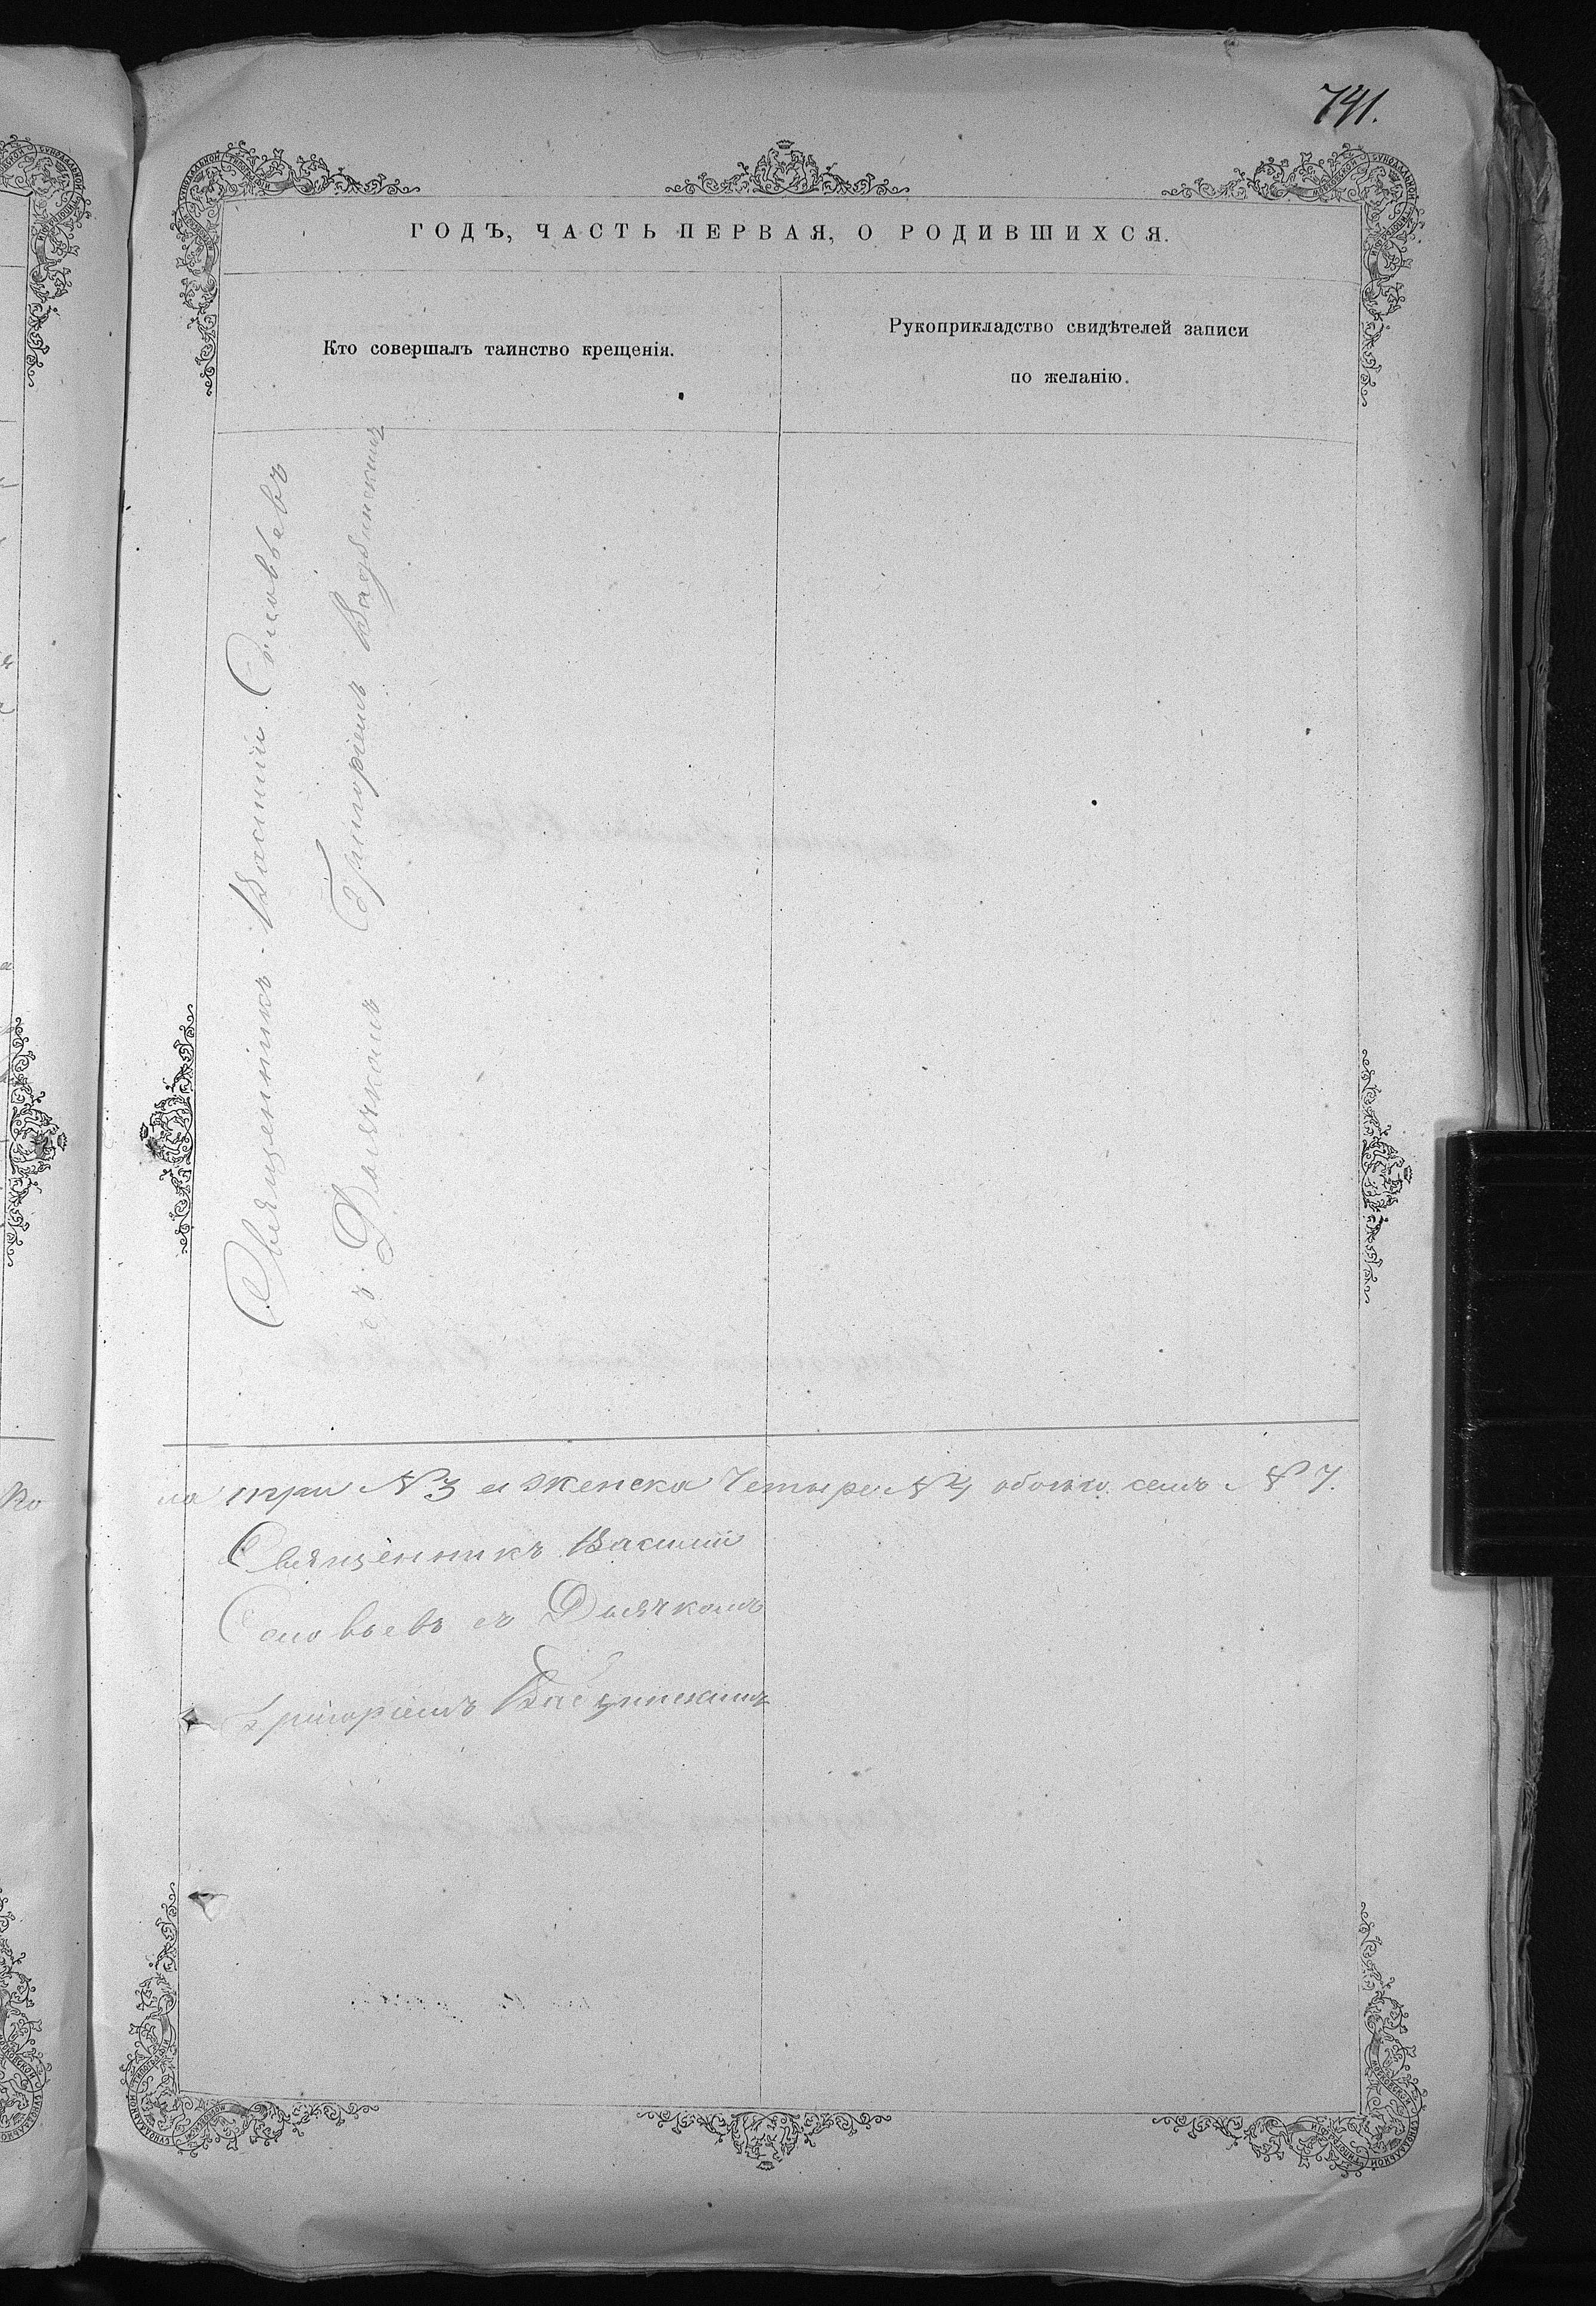 741.
ГОДЪ, ЧАСТЬ ПЕРВАЯ, О РОДИВШИХСЯ.
Кто совершалъ таинство крещенія.
Рукоприкладство свидѣтелей записи
по желанію.
Священникъ Василій Соловьевъ
съ Дьячкомъ Григоріемъ
на три № 3 и женска Четыре № 4 обоего семь № 7.
Священникъ Василій
Соловьевъ съ Дьячкомъ
Григоріемъ